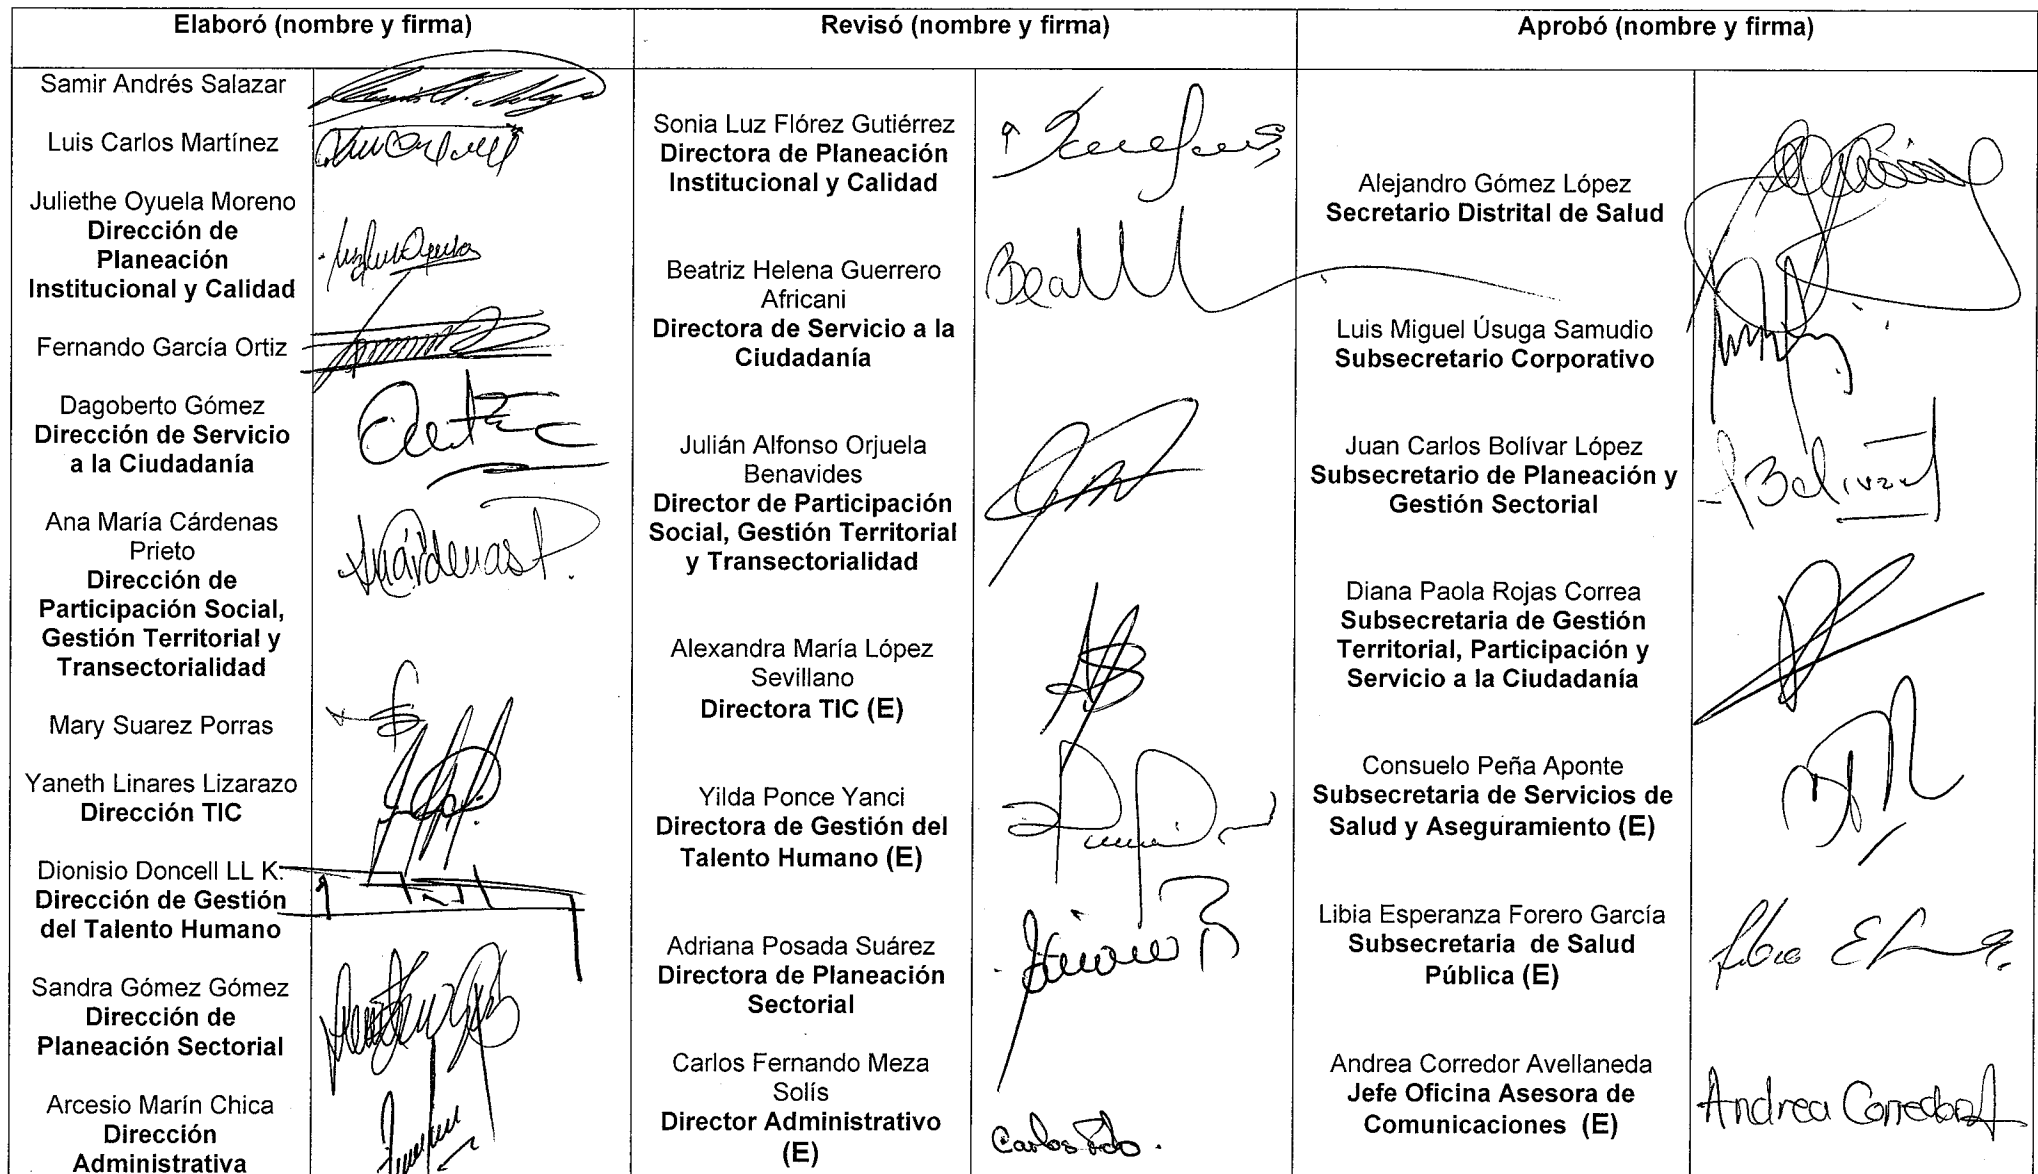 Elaboró (nombre y firma)
Revisó (nombre y firma)
Aprobó (nombre y firma)
Samir Andrés Salazar
Luis Carlos Martínez
Juliethe Oyuela Moreno
Dirección de
Planeación
Institucional y Calidad
Fernando García Ortiz
Dagoberto Gómez
Dirección de Servicio
a la Ciudadanía
Ana María Cárdenas
Prieto
Dirección de
Participación Social,
Gestión Territorial y
Transectorialidad
Mary Suarez Porras
Yaneth Linares Lizarazo
Dirección TIC
Dionisio Doncell LL K.
Dirección de Gestión
del Talento Humano
Sandra Gómez Gómez
Dirección de
Planeación Sectorial
Arcesio Marín Chica
Dirección
Administrativa
Sonia Luz Flórez Gutiérrez
Directora de Planeación
Institucional y Calidad
Beatriz Helena Guerrero
Africani
Directora de Servicio a la
Ciudadanía
Julián Alfonso Orjuela
Benavides
Director de Participación
Social, Gestión Territorial
y Transectorialidad
Alexandra María López
Sevillano
Directora TIC (E)
Yilda Ponce Yanci
Directora de Gestión del
Talento Humano (E)
Adriana Posada Suárez
Directora de Planeación
Sectorial
Carlos Fernando Meza
Solís
Director Administrativo
(E)
Carlos
Alejandro Gómez López
Secretario Distrital de Salud
Luis Miguel Úsuga Samudio
Subsecretario Corporativo
Juan Carlos Bolívar López
Subsecretario de Planeación y
Gestión Sectorial
Bolívar
Diana Paola Rojas Correa
Subsecretaria de Gestión
Territorial, Participación y
Servicio a la Ciudadanía
Consuelo Peña Aponte
Subsecretaria de Servicios de
Salud y Aseguramiento (E)
Libia Esperanza Forero García
Subsecretaria de Salud
Pública (E)
Andrea Corredor Avellaneda
Jefe Oficina Asesora de
Comunicaciones (E)
Andrea Corredor A